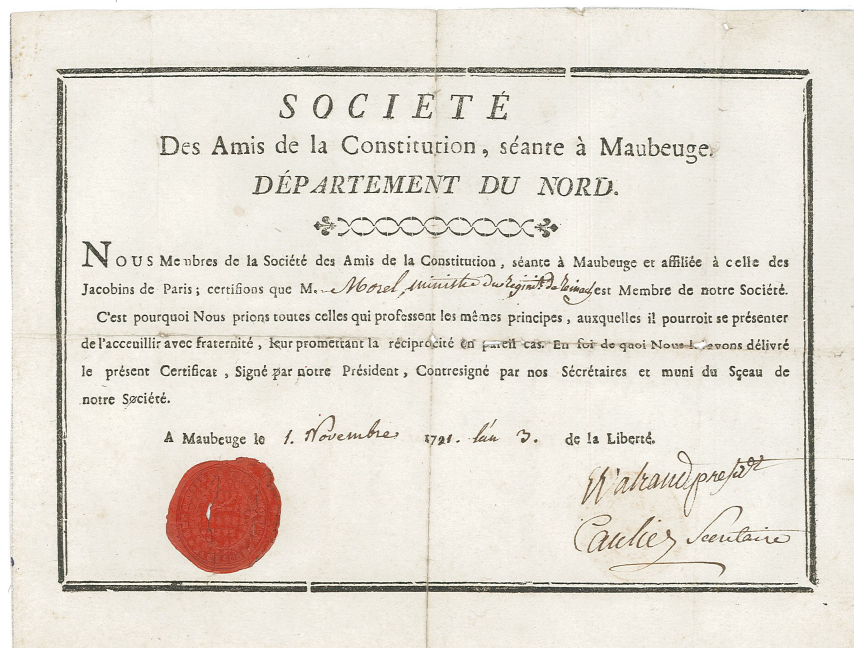 SOCIETÉ
Des Amis de la Constitution, séante à Maubeuge.
DÉPARTEMENT DU NORD.
NOUS Membres de la Société des Amis de la Constitution, séante à Maubeuge et affiliée à celle des
Jacobins de Paris; certifions que M. Morel, ministre du Regim.t de est Membre de notre Société.
C'est pourquoi Nous prions toutes celles qui professent les mêmes principes, auxquelles il pourroit se présenter
de l'acceuillir avec fraternité, leur promettant la réciprocité en pareil cas. En foi de quoi Nous avons délivré
le présent Certificat, Signé par notre Président, Contresigné par nos Sécrétaires et muni du Sçeau de
notre Société.
A Maubeuge le 1. Novembre 1791. l'an 3. de la Liberté.
presidt
Secretaire